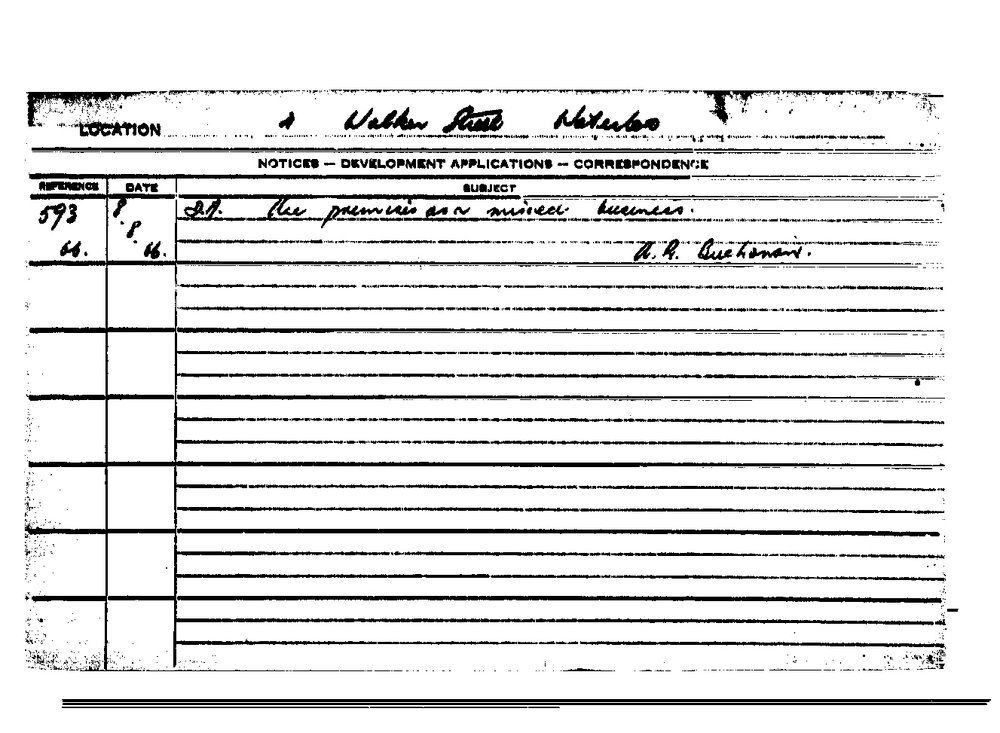 LOCATION Walker Street Waterloo
NOTICES — DEVELOPMENT APPLICATIONS — CORRESPONDENCE
REFERENCE DATE SUBJECT
593 8. D.A. premises as a business.
8.
66. 66. A. R. Buchanan.